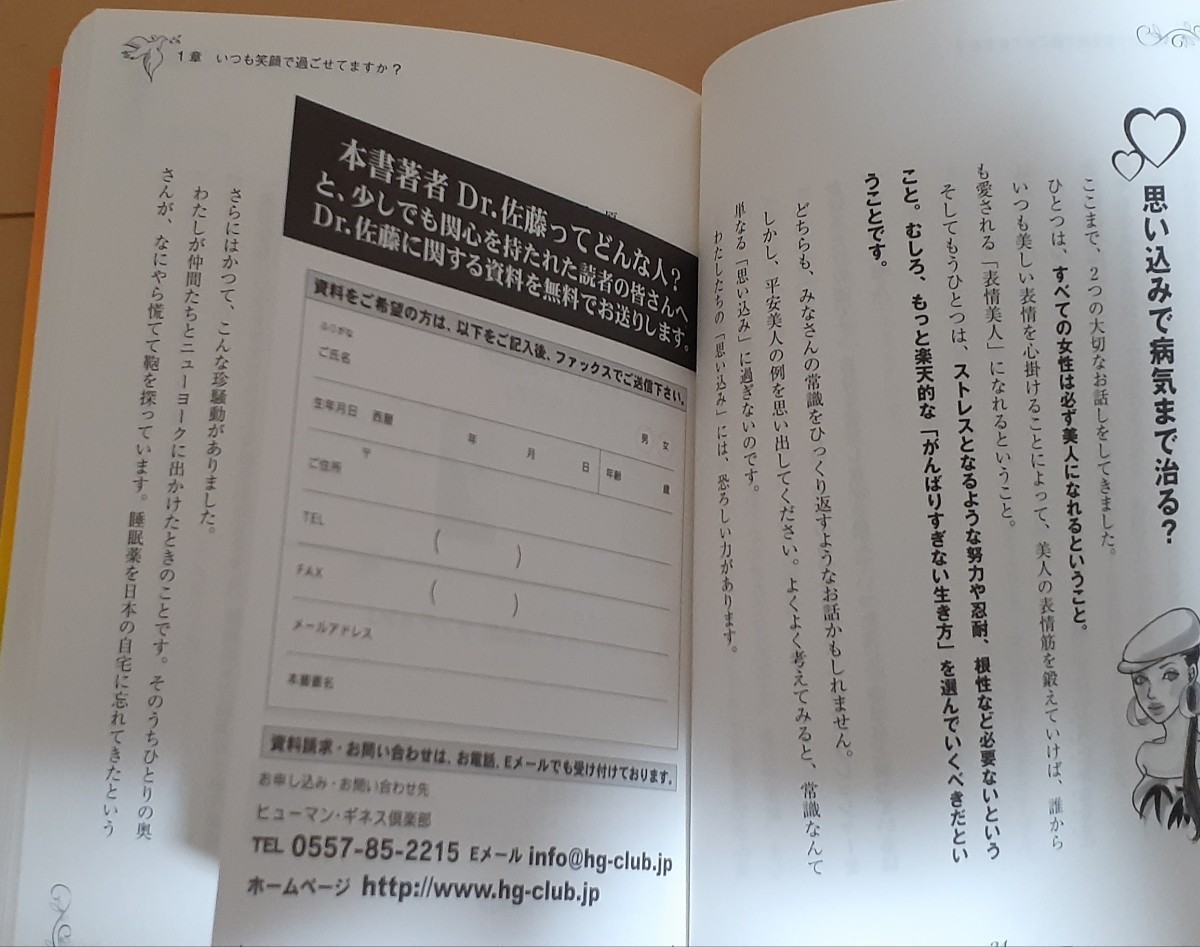 思い込みで病気まで治る?
ここまで、2つの大切なお話しをしてきました。
ひとつは、すべての女性は必ず美人になれるということ。
いつも美しい表情を心掛けることによって、美人の表情筋を鍛えていけば、誰から
も愛される「表情美人」になれるということ。
そしてもうひとつは、ストレスとなるような努力や忍耐、根性など必要ないという
こと。むしろ、もっと楽天的な「がんばりすぎない生き方」を選んでいくべきだとい
うことです。
どちらも、みなさんの常識をひっくり返すようなお話かもしれません。
しかし、平安美人の例を思い出してください。よくよく考えてみると、常識なんて
単なる「思い込み」に過ぎないのです。
わたしたちの「思い込み」には、恐ろしい力があります。
1章 いつも笑顔で過ごせてますか?
本書著者 Dr.佐藤ってどんな人?
と、少しでも関心を持たれた読者の皆さんへ
Dr.佐藤に関する資料を無料でお送りします。
資料をご希望の方は、以下をご記入後、ファックスでご送信下さい。
ふりがな
ご氏名
男 女
生年月日 西暦 年 月 日 年齢 歳
〒
ご住所
TEL ( )
FAX ( )
メールアドレス
本書書名
資料請求・お問い合わせは、お電話、Eメールでも受け付けております。
お申し込み・お問い合わせ先
ヒューマン・ギネス倶楽部
TEL 0557-85-2215 Eメール info@hg-club.jp
ホームページ http://www.hg-club.jp
さらにはかつて、こんな珍騒動がありました。
わたしが仲間たちとニューヨークに出かけたときのことです。そのうちひとりの奥
さんが、なにやら慌てて鞄を探っています。睡眠薬を日本の自宅に忘れてきたという